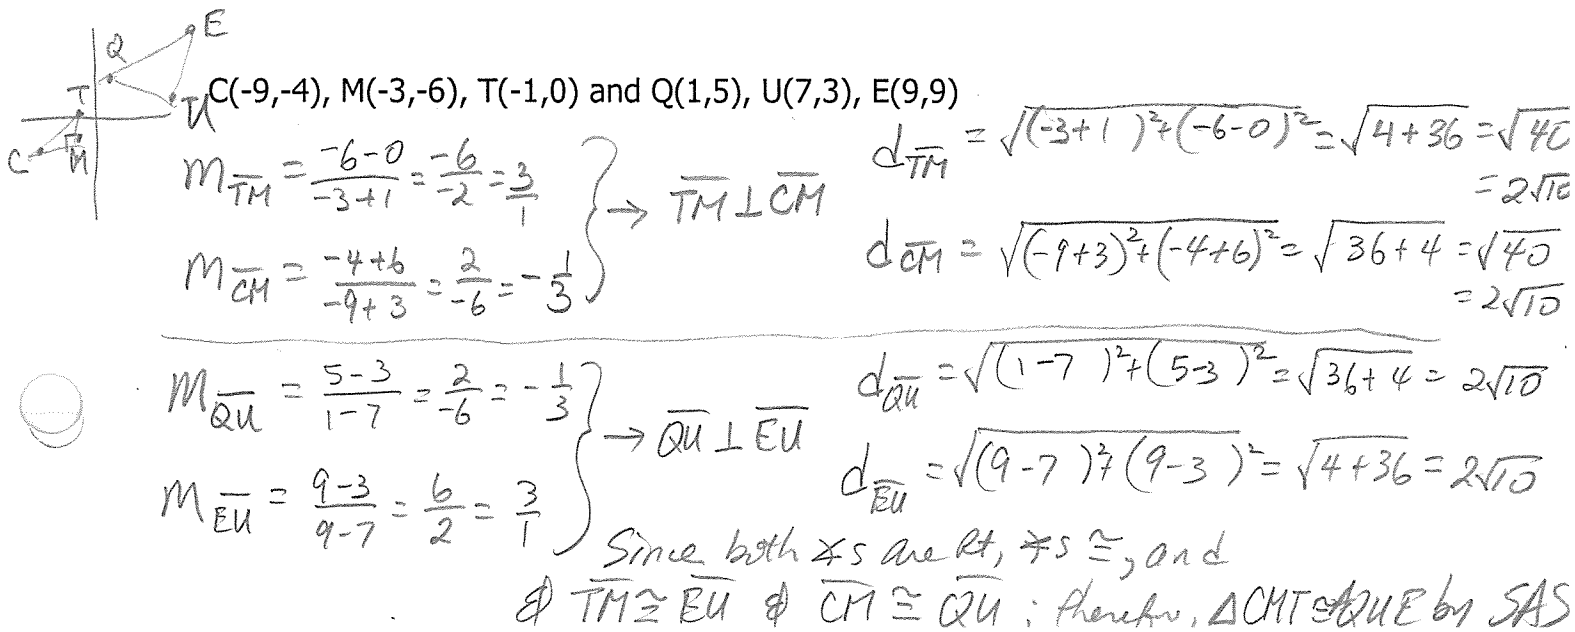 E
Q
T
U
C
M
C(-9,-4), M(-3,-6), T(-1,0) and Q(1,5), U(7,3), E(9,9)
m_TM = (-6-0)/(-3+1) = -6/-2 = 3/1
m_CM = (-4+6)/(-9+3) = 2/-6 = -1/3
} → TM ⊥ CM
d_TM = √((-3+1)²+(-6-0)²) = √(4+36) = √40
= 2√10
d_CM = √((-9+3)²+(-4+6)²) = √(36+4) = √40
= 2√10
m_QU = (5-3)/(1-7) = 2/-6 = -1/3
m_EU = (9-3)/(9-7) = 6/2 = 3/1
} → QU ⊥ EU
d_QU = √((1-7)²+(5-3)²) = √(36+4) = 2√10
d_EU = √((9-7)²+(9-3)²) = √(4+36) = 2√10
Since both ∡s are Rt, ∡s ≅, and
& TM ≅ EU & CM ≅ QU ; therefor, △CMT≅△QUE by SAS